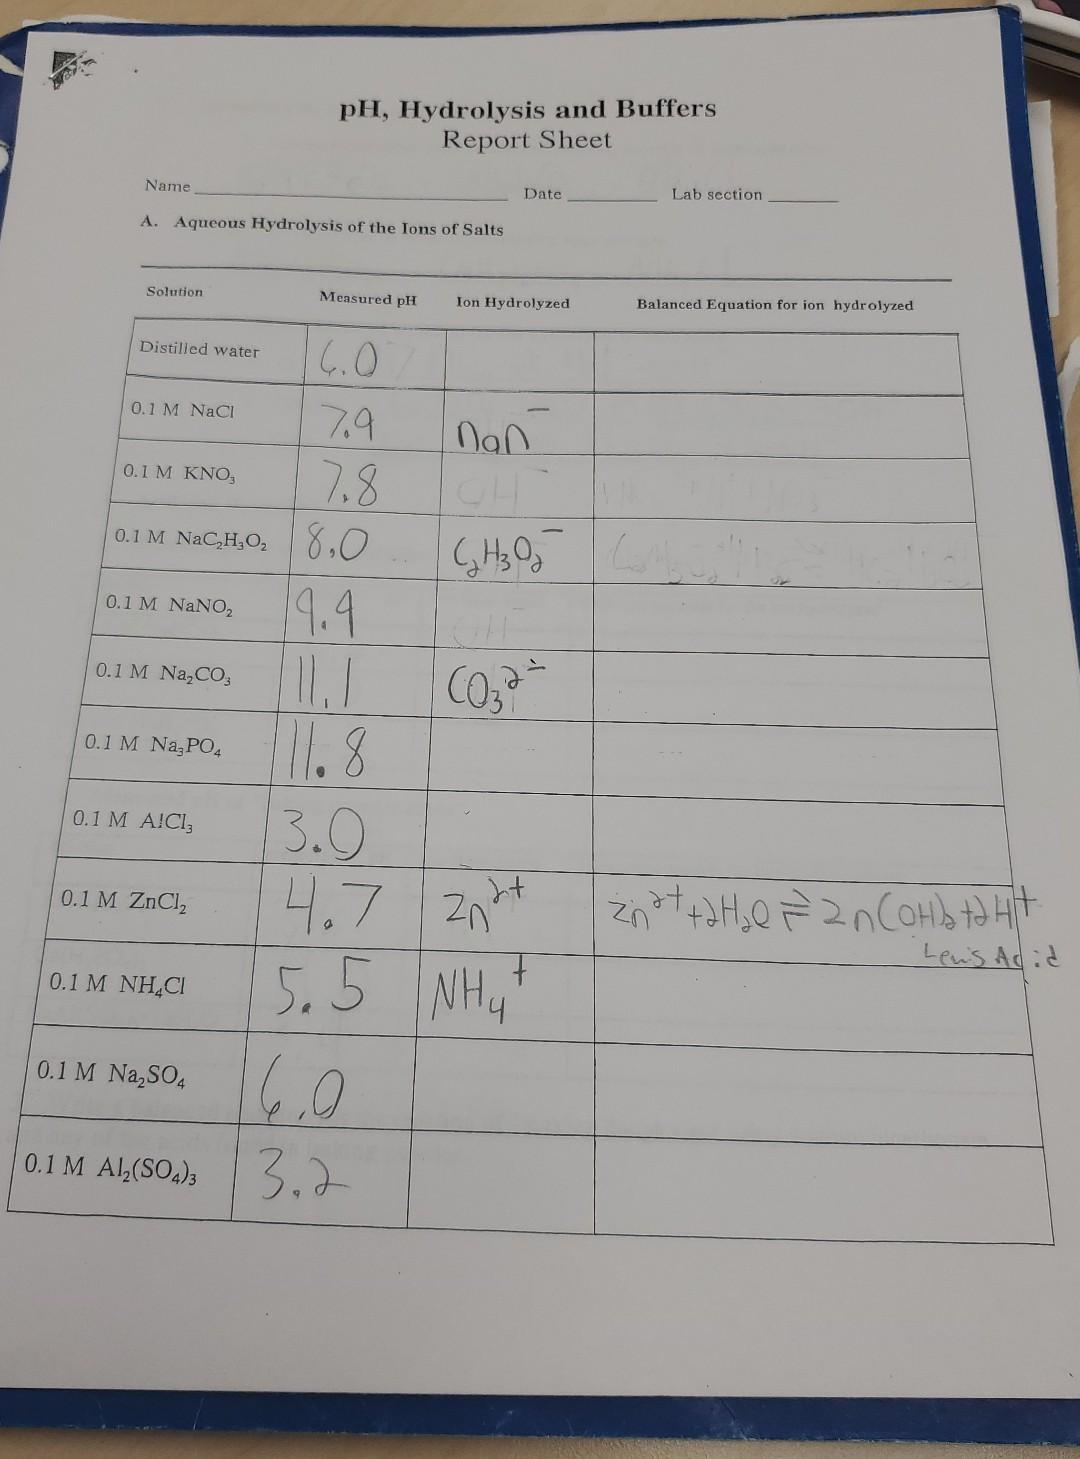 pH, Hydrolysis and Buffers
Report Sheet
Name Date Lab section
A. Aqueous Hydrolysis of the Ions of Salts
Solution Measured pH Ion Hydrolyzed Balanced Equation for ion hydrolyzed
Distilled water 6.0
0.1 M NaCl 7.9
0.1 M KNO₃ 7.8 OH⁻
0.1 M NaC₂H₃O₂ 8.0 C₂H₃O₂⁻
0.1 M NaNO₂ 9.9 OH⁻
0.1 M Na₂CO₃ 11.1 CO₃²⁻
0.1 M Na₃PO₄ 11.8
0.1 M AlCl₃ 3.0
0.1 M ZnCl₂ 4.7 Zn²⁺ Zn²⁺+2H₂O ⇌ Zn(OH)₂+2H⁺
Lewis Acid
0.1 M NH₄Cl 5.5 NH₄⁺
0.1 M Na₂SO₄ 6.0
0.1 M Al₂(SO₄)₃ 3.2